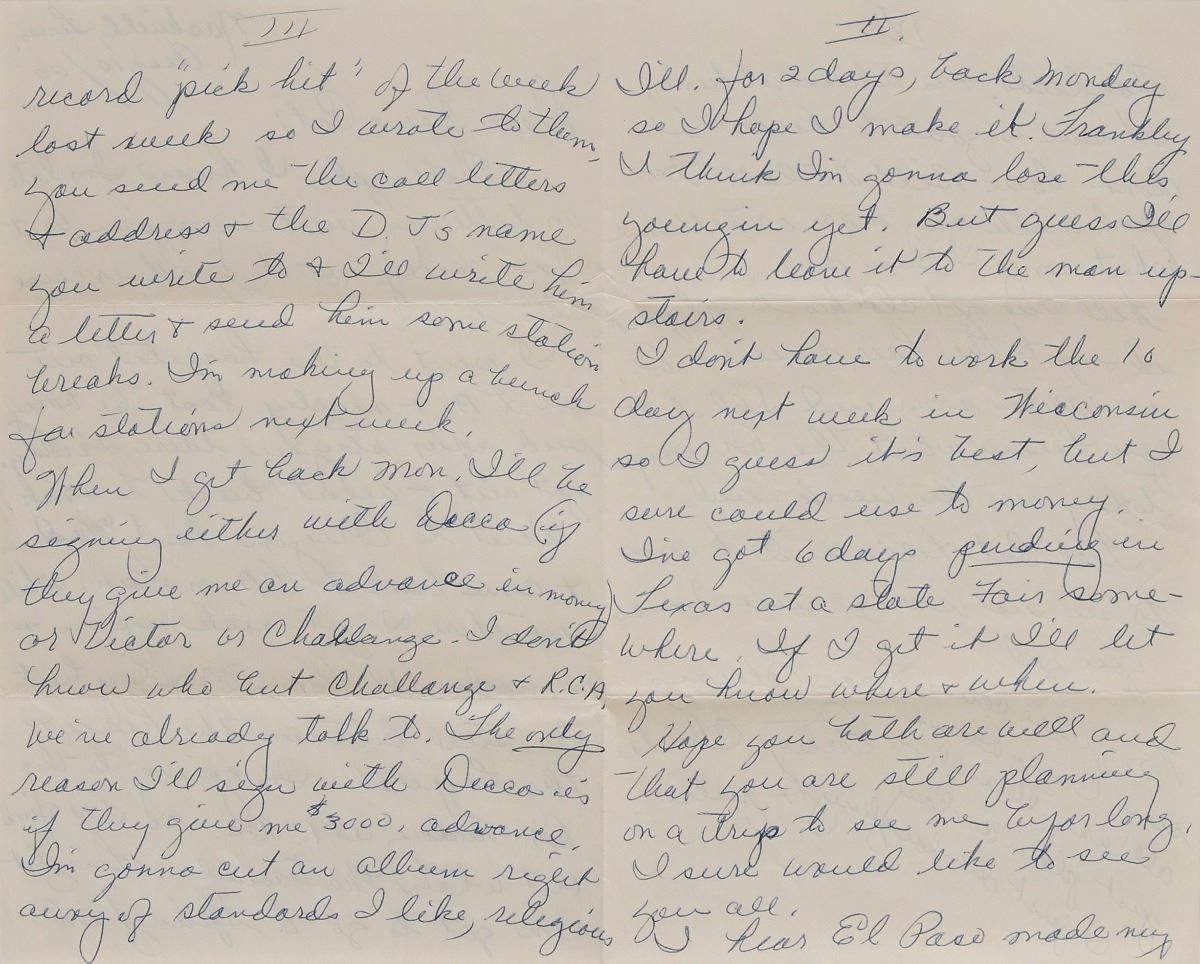 II.
Ill. for 2 days, back Monday
so I hope I make it. Frankly
I think I'm gonna lose this
youngin yet. But guess I'll
have to leave it to the man up-
stairs.
I don't have to work the 10
day next week in Wisconsin
so I guess it's best, but I
sure could use to money.
I've got 6 days pending in
Texas at a state Fair some-
where. If I get it I'll let
you know where & when.
Hope you both are well and
that you are still planning
on a trip to see me befor long,
I sure would like to see
you all.
I hear El Paso made my
III
record "pick hit" of the week
last week so I wrote to them,
you send me the call letters
& address & the D.J's name
you write to & I'll write him
a letter & send him some station
breaks. I'm making up a bunch
for stations next week.
When I get back Mon. I'll be
signing either with Decca (if
they give me an advance in money)
or Victor or Challange. I don't
know who but Challange & R.C.A.
we've already talk to. The only
reason I'll sign with Decca is
if they give me $3000. advance.
I'm gonna cut an album right
away of standards I like, religious